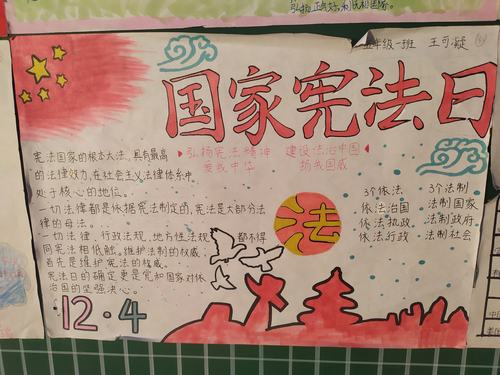 弘扬正能量,利民和国家。
五年级一班 王可凝
国家宪法日
弘扬宪法精神 建设法治中国
爱我中华 扬我国威
宪法国家的根本大法,具有最高
的法律效力,在社会主义法律体系中
处于核心的地位。
一切法律都是依据宪法制定的,宪法是大部分法
律的母法。
一切法律,行政法规,地方性法规 都不得
同宪法相低触。维护法制的权威,
首先是维护宪法的权威。
宪法日的确定更是党和国家对依
治国的坚强决心。
法
3个依法 3个法制
依法治国 法制国家
依法执政 法制政府
依法行政 法制社会
12·4